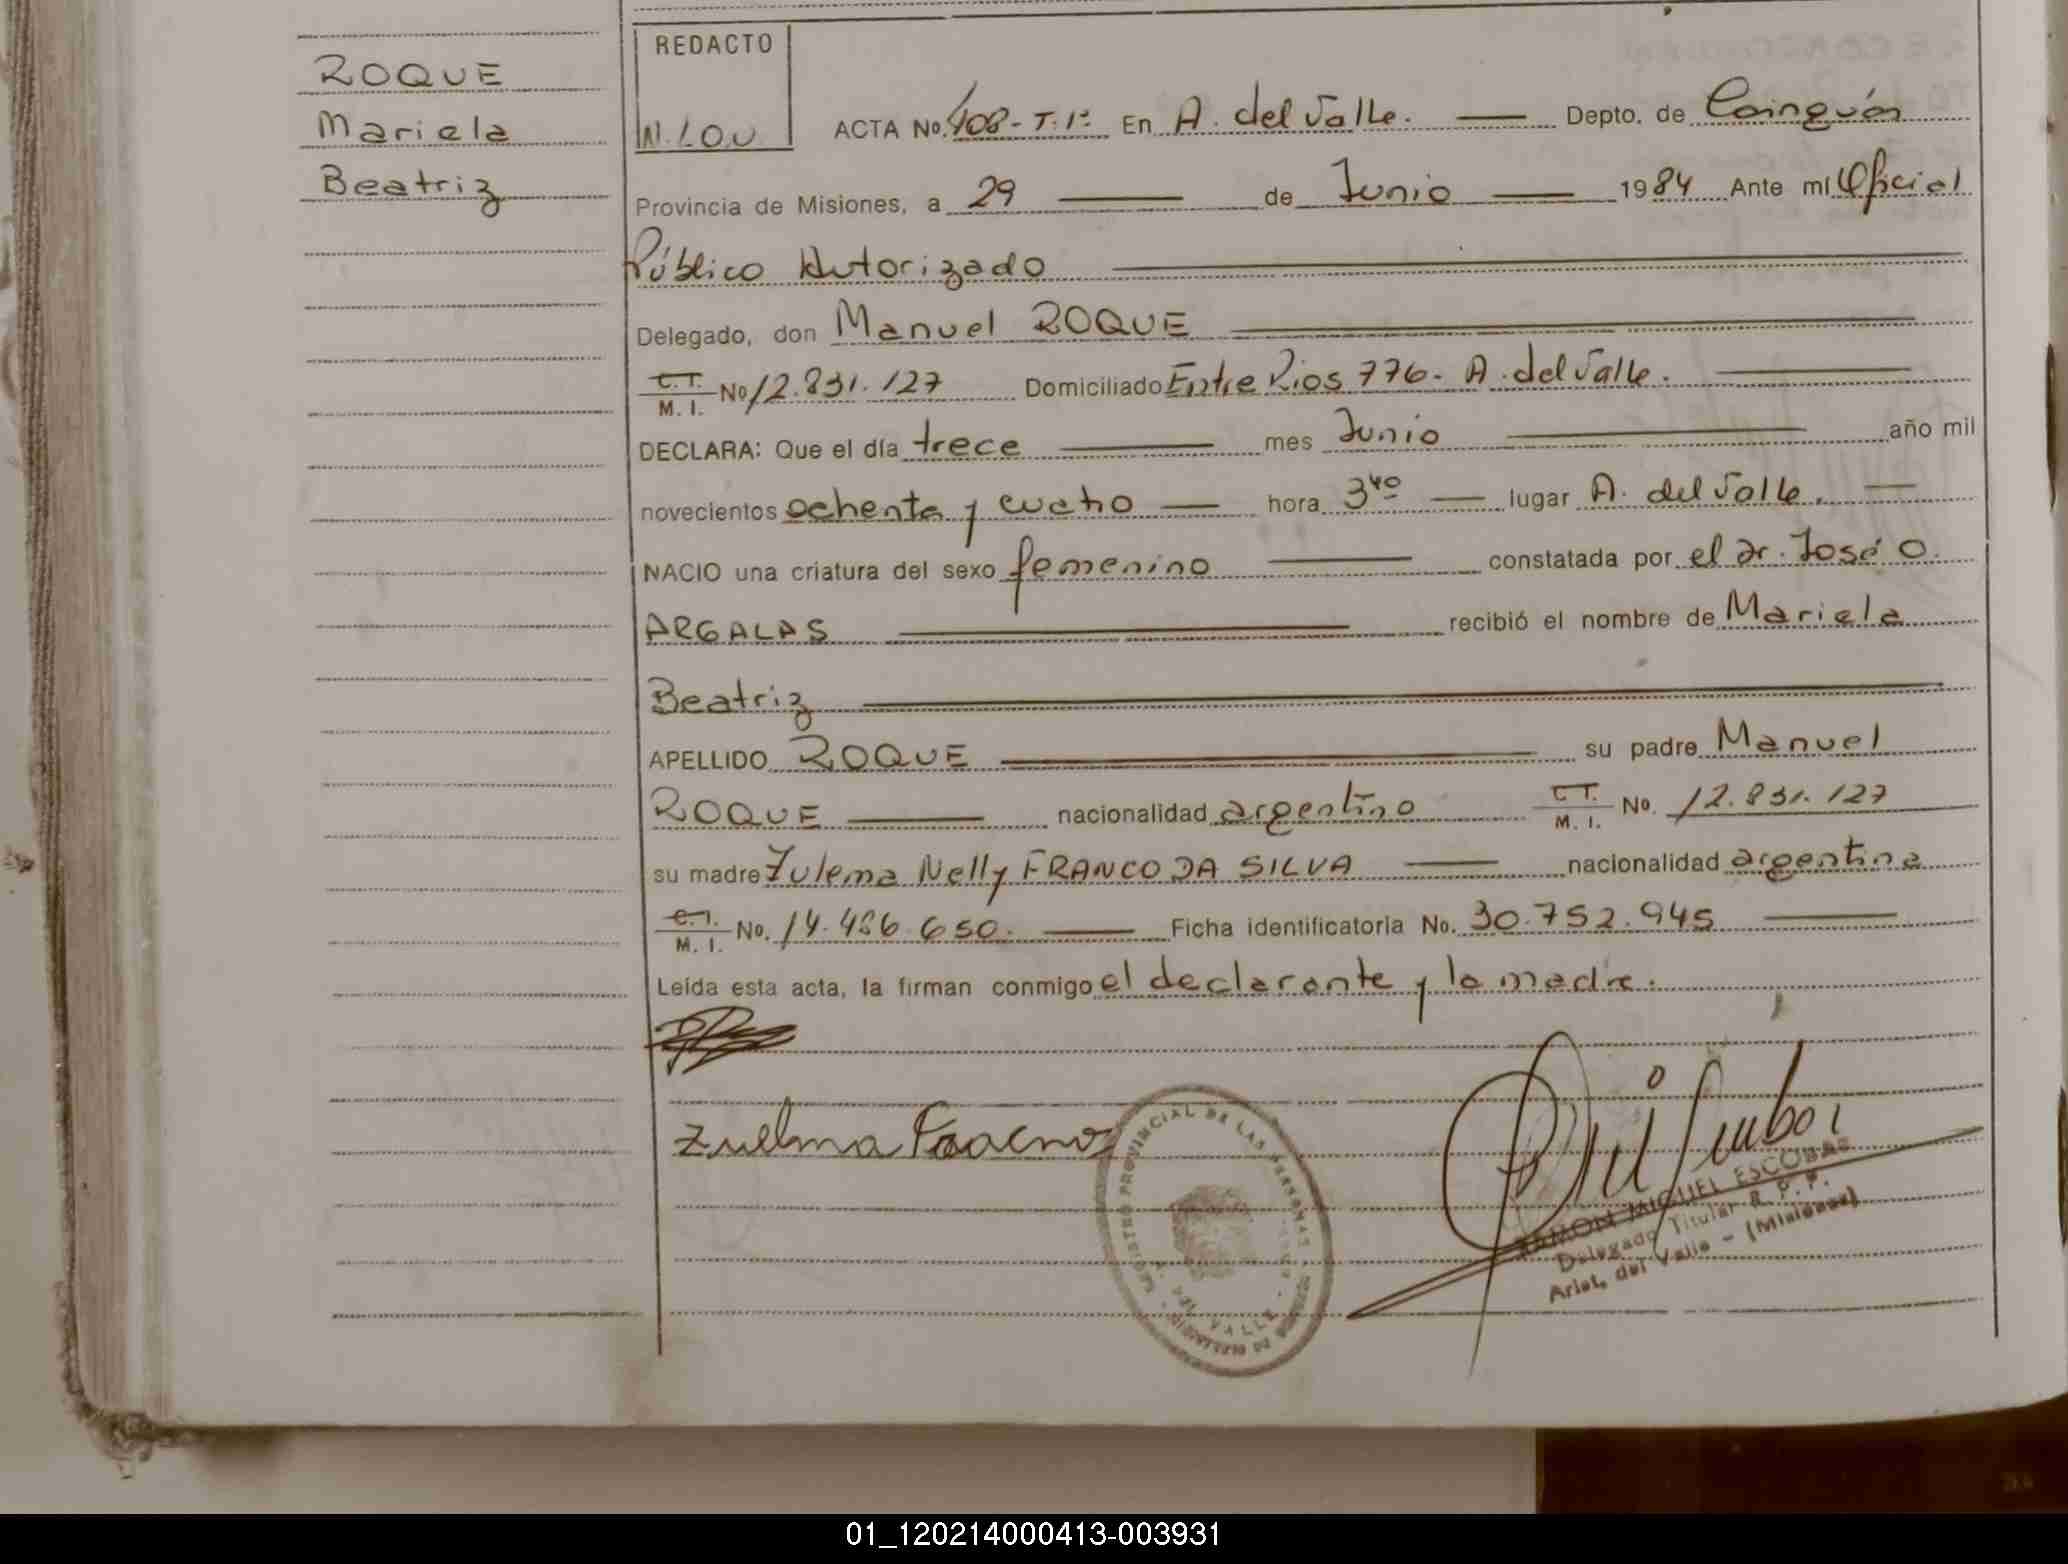 ROQUE
Mariela
Beatriz
REDACTO
N. LOV.
ACTA No. 408-T.1º En A. del Valle. Depto. de Cainguás
Provincia de Misiones, a 29 de Junio 1984 Ante mi Oficial
Público Autorizado
Delegado, don Manuel ROQUE
C.I. M. I. No 12.831.127 Domiciliado Entre Rios 776. A. del Valle.
DECLARA: Que el día trece mes Junio año mil
novecientos ochenta y cuatro hora 3⁴⁰ lugar A. del Valle.
NACIO una criatura del sexo femenino constatada por el Dr. José O.
ARGALAS recibió el nombre de Mariela
Beatriz
APELLIDO ROQUE su padre Manuel
ROQUE nacionalidad argentino C.I. M. I. No. 12.831.127
su madre Zulema Nelly FRANCO DA SILVA nacionalidad argentina
C.I. M. I. No. 14.486.650. Ficha identificatoria No. 30.752.945
Leída esta acta, la firman conmigo el declarante y la madre.
REGISTRO PROVINCIAL DE LAS PERSONAS
VALLE
RAMON MIGUEL ESCOBAR
Delegado Titular R. P. P.
Arist. del Valle - (Misiones)
01_120214000413-003931